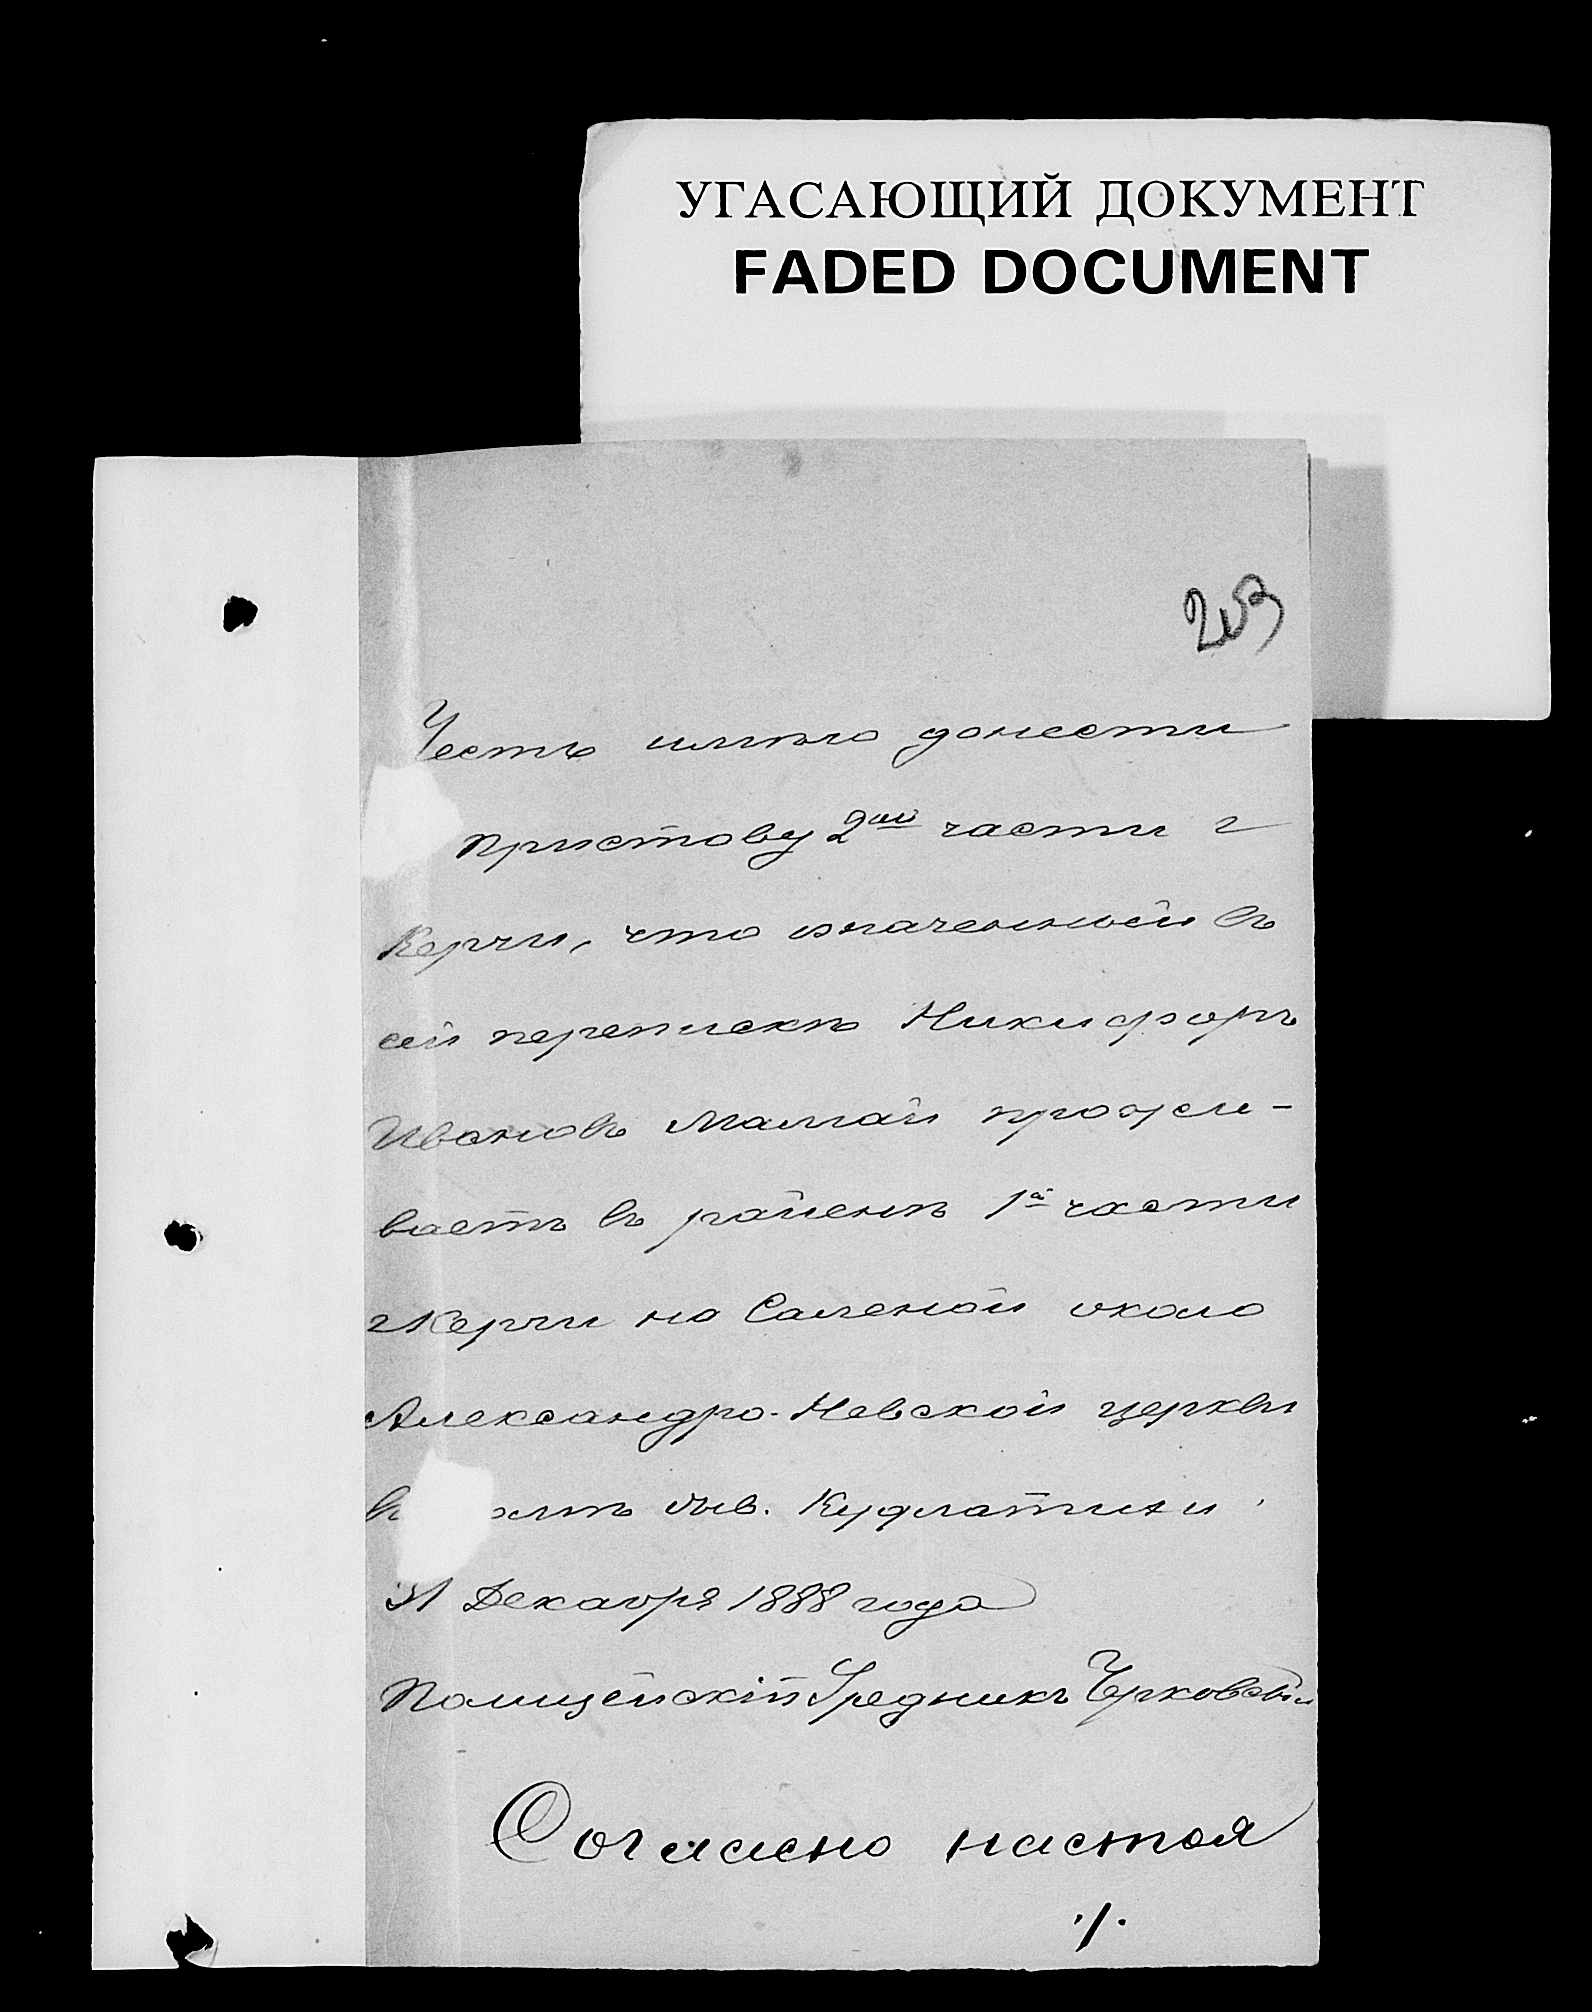 УГАСАЮЩИЙ ДОКУМЕНТ
FADED DOCUMENT
203
Честь имѣю донести
Приставу 2ой части г
Керчи, что означенный въ
сей перепискѣ Никифоръ
Ивановъ Мамай прожи-
ваетъ въ районѣ 1й части
г Керчи на Саленой около
Александро-Невской церкви
в омѣ быв. Кудлатики
31 Декабря 1888 года
Полицейскій Урядникъ
Согласно настоя
./.